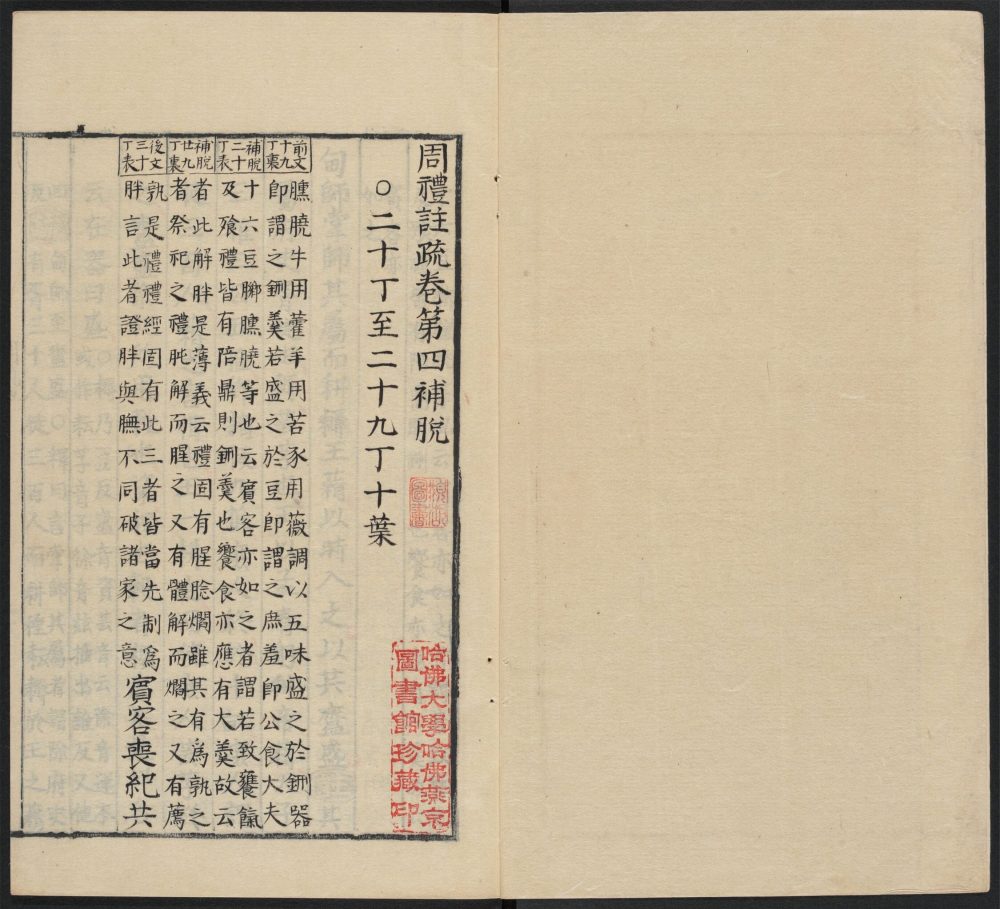 周禮註疏卷第四補脫
○二十丁至二十九丁十葉
前文十九丁裏
臐膮牛用藿羊用苦豕用薇調以五味盛之於鉶器
即謂之鉶羹若盛之於豆即謂之庶羞即公食大夫
補脫二十丁表
十六豆膷臐膮等也云賓客亦如之者謂若致饔餼
及飱禮皆有陪鼎則鉶羹也饗食亦應有大羹故云
補脫廿九丁裏
者此解胖是薄義云禮固有腥腍爓雖其有爲孰之
者祭祀之禮肫解而腥之又有體解而爓之又有薦
後文三十丁表
孰是禮禮經固有此三者皆當先制爲
胖言此者證胖與膴不同破諸家之意
賓客喪紀共
哈佛大學哈佛燕京
圖書館珍藏印
圖書